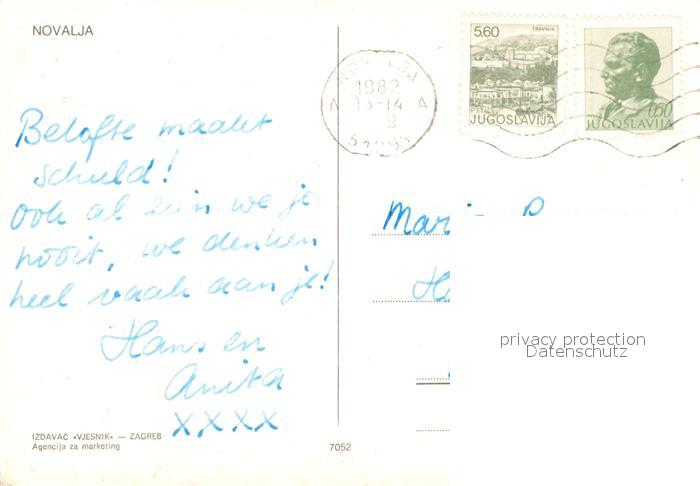 NOVALJA
5.60
TRAVNIK
JUGOSLAVIJA
0.50
JUGOSLAVIJA
NOVALJA
1982
A 13-14 A
9
Belofte maakt
schuld!
ook al zien we je
nooit, we denken
heel vaak aan je!
Hans en
Anita
XXXX
privacy protection
Datenschutz
IZDAVAČ »VJESNIK« — ZAGREB
Agencija za marketing
7052